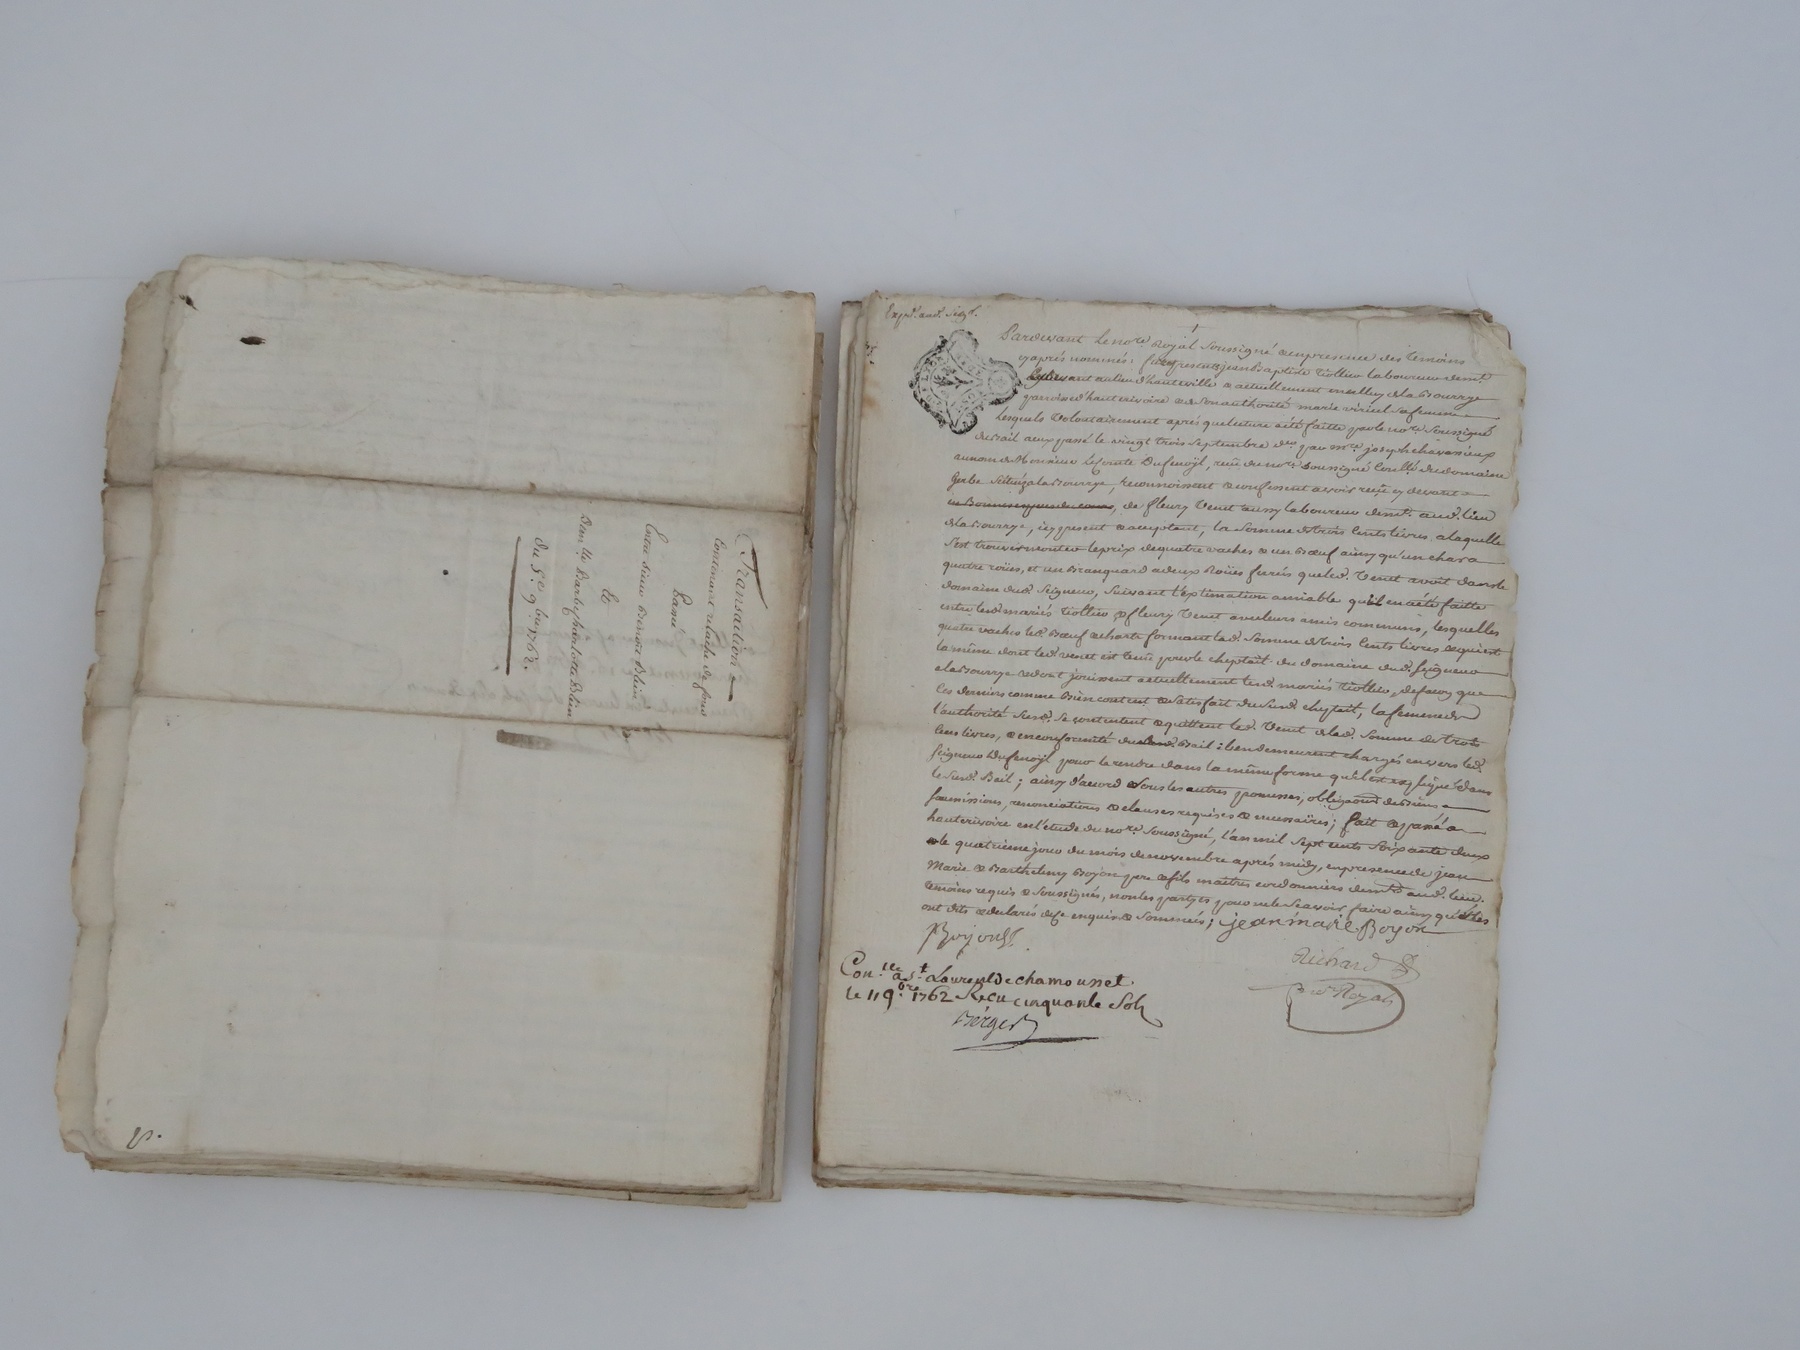 Transaction
Contenant relache de fond
Passé
Entre sieur Benoist Blein
Et
Dam.lle Barthy
du 5.e 9.bre 1762.
Expéd. aud. Seig.r
Pardevant Le no.re Royal Soussigné & en presence des temoins
cy aprés nommés, furent presents jean Baptiste Viollier laboureur demt.
cydevant au lieu d'hauteville & actuellement en celluy de la Bourrge
parroisse d'hauterivoire & de son authorité marie viricel sa femme
Lesquels volontairement aprés que lecture a été faitte par le no.re Soussigné
du Bail a eux passé le vingt trois septembre d.er par m.re joseph chavanieux
au nom de Monsieur le Comte Dufenoÿl, reçu du no.re Soussigné du domaine
Gerbe Scitué a la Bourrge, reconnoissent & confessent avoir reçu cy devant
de fleury Venet aussy laboureur demt. aud. lieu
de la Bourrge, icy present & acceptant, la Somme de trois Cents livres a laquelle
s'est trouvé monter le prix de quatre vaches & un Bœuf ainsy qu'un char a
quatre roües, et un Branquard a deux Roües ferrés que led. Venet avoit dans le
domaine dud. Seigneur, Suivant l'extimation amiable qu'il en a été faitte
entre lesd. mariés Viollier & fleury Venet & leurs amis communs, lesquelles
quatre vaches led. Bœuf & charts formant lad. Somme de trois Cents livres & qui est
la même dont led. venet est tenu pour le cheptail du domaine dud. Seigneur
a la Bourrge & dont jouissent actuellement lesd. mariés Viollier, de façon que
Ces derniers comme Bien content & Satisfait du Susd. cheptail, la femme de
l'authorité Susd. Se contentent & quittent led. Venet de lad. Somme de trois
Cens livres, & en conformité dud. Bail ils en demeurent chargés envers led.
Seigneur Dufenoÿl pour le rendre dans la même forme qu'il est expliqué dans
le Susd. Bail; ainsy d'acord & Sous les autres promesses, obligaons de Biens
Soumissions, renonciations & clauses requises & necessaires; fait & passé a
hauterivoire en l'étude du no.re Soussigné, l'an mil Sept cents Soixante deux
& le quatrieme jour du mois de novembre aprés midy, en presence de jean
Marie & Barthelemy Boyon pere & fils maîtres cordonniers demts. aud. lieu
temoins requis & Soussignés, non les partyes pour ne le Scavoir faire ainsy qu'elles
ont dits & declarés de ce enquis & Sommeés; jean marie Boyon
B Boyon
Richard
no.re Royal
Con.lle a S.t Laurent de chamousset
le 11 9.bre 1762 Reçu cinquante Sols
Berger